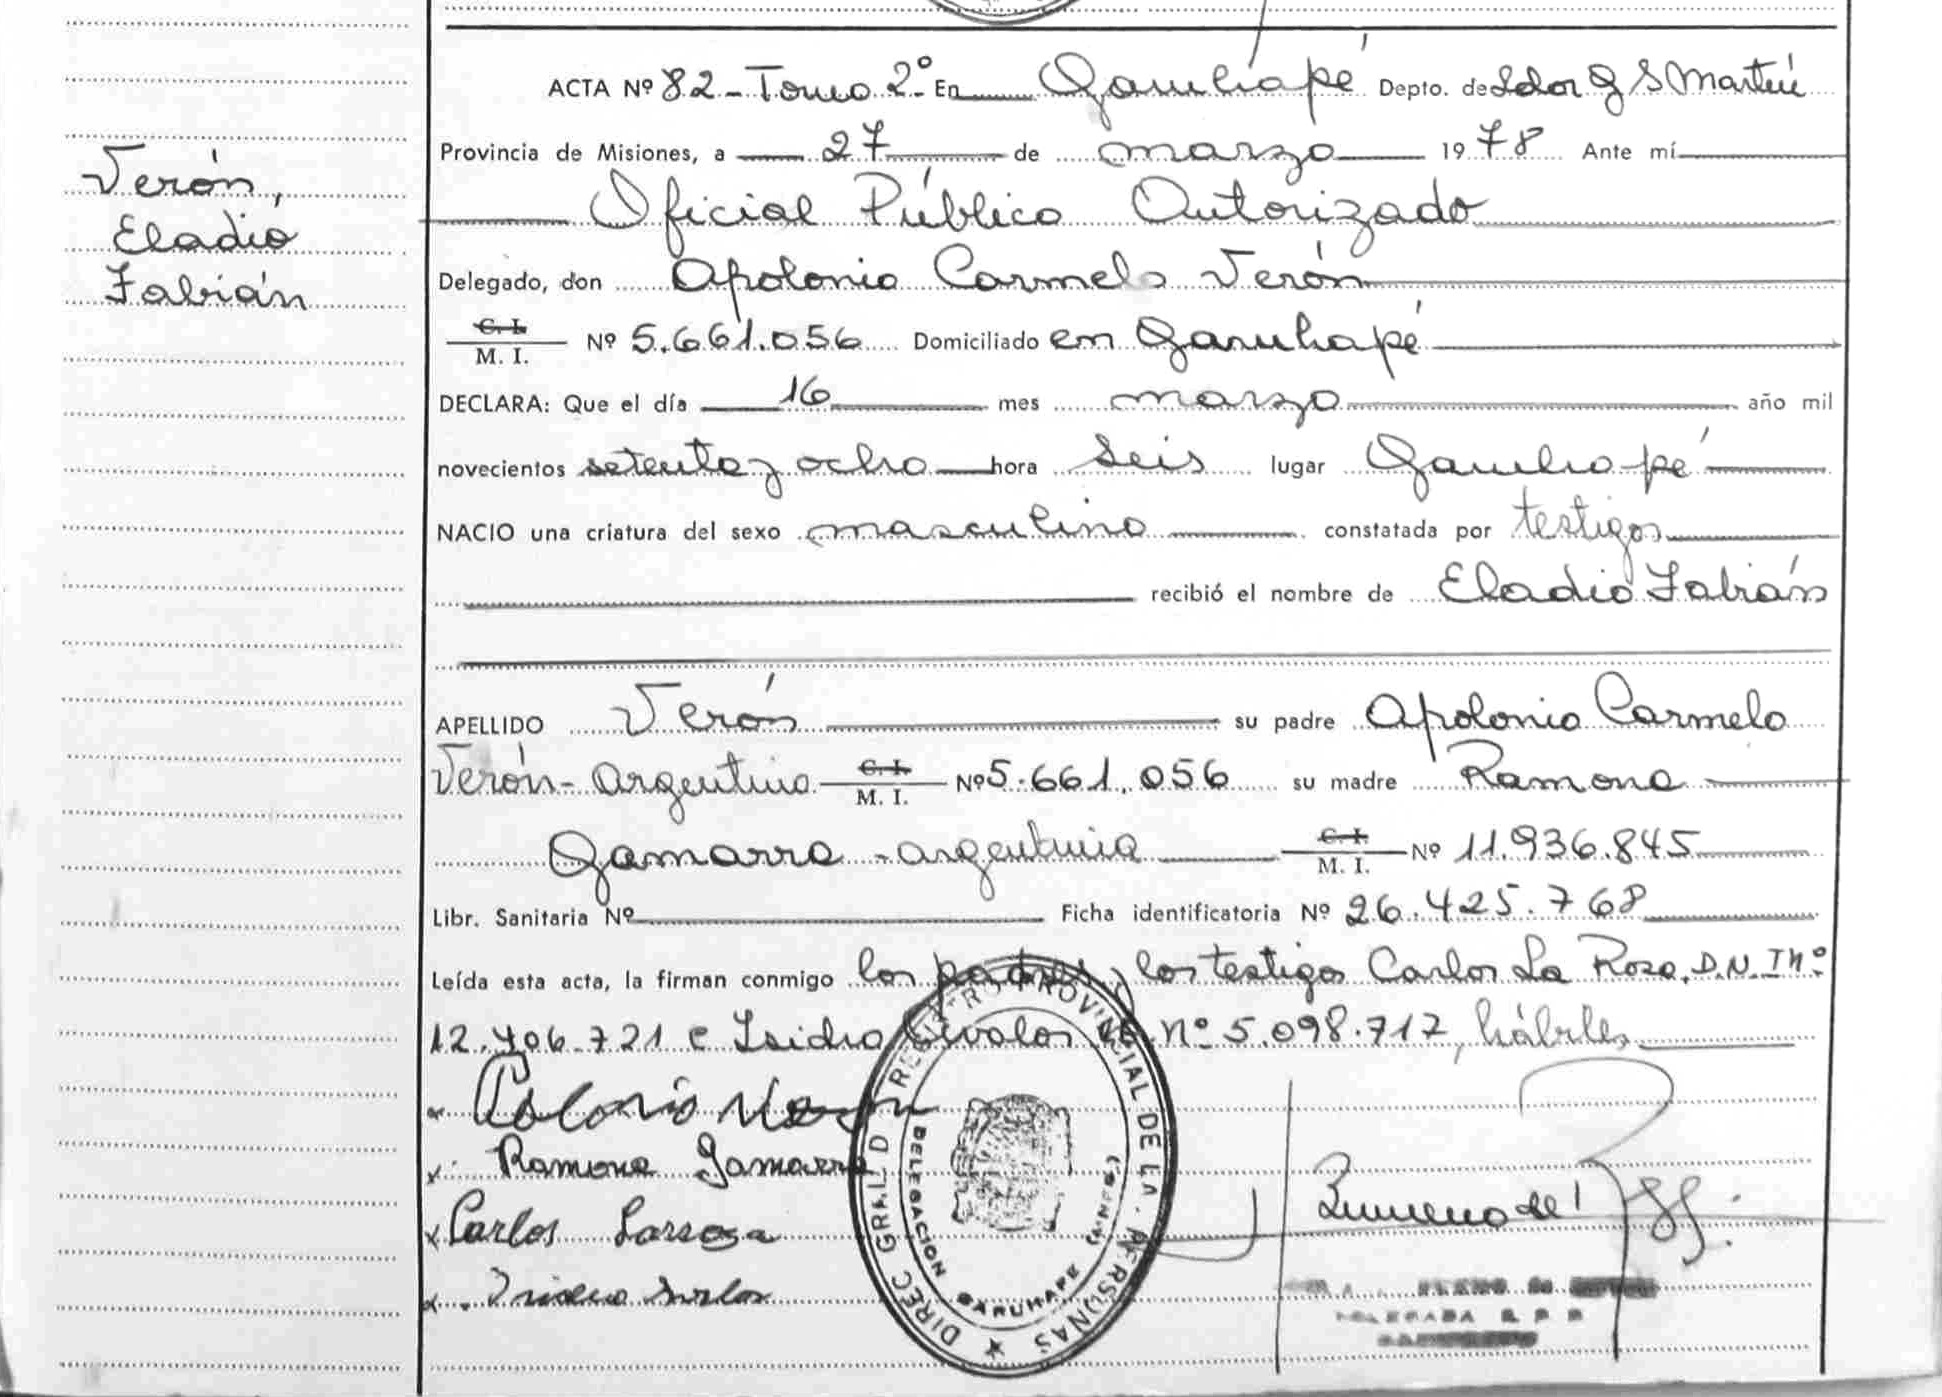 ACTA Nº 82 - Tomo 2º En Garuhapé Depto. de Ldor G S Martín
Provincia de Misiones, a 27 de marzo 1978 Ante mí
Verón,
Oficial Público Autorizado
Eladio
Fabián
Delegado, don Apolonio Carmelo Verón
C. I.
M. I. Nº 5.661.056 Domiciliado en Garuhapé
DECLARA: Que el día 16 mes marzo año mil
novecientos setenta y ocho hora seis lugar Garuhapé
NACIO una criatura del sexo masculino constatada por testigos
recibió el nombre de Eladio Fabián
APELLIDO Verón su padre Apolonio Carmelo
Verón - argentino C. I. M. I. Nº 5.661.056 su madre Ramona
Gamarra - argentina C. I. M. I. Nº 11.936.845
Libr. Sanitaria Nº Ficha identificatoria Nº 26.425.768
Leída esta acta, la firman conmigo los padres y los testigos Carlos La Rosa, D.N.I nº
12.706.721 e Isidro nº 5.098.717, hábiles
x Polonio Veron
x Ramona Gamarra
x Carlos Larrosa
x
DIREC GRAL D REGISTRO PROVINCIAL DE LA PERSONAS
DELEGACION GARUHAPE (MNES.)
DELEGADA R P P